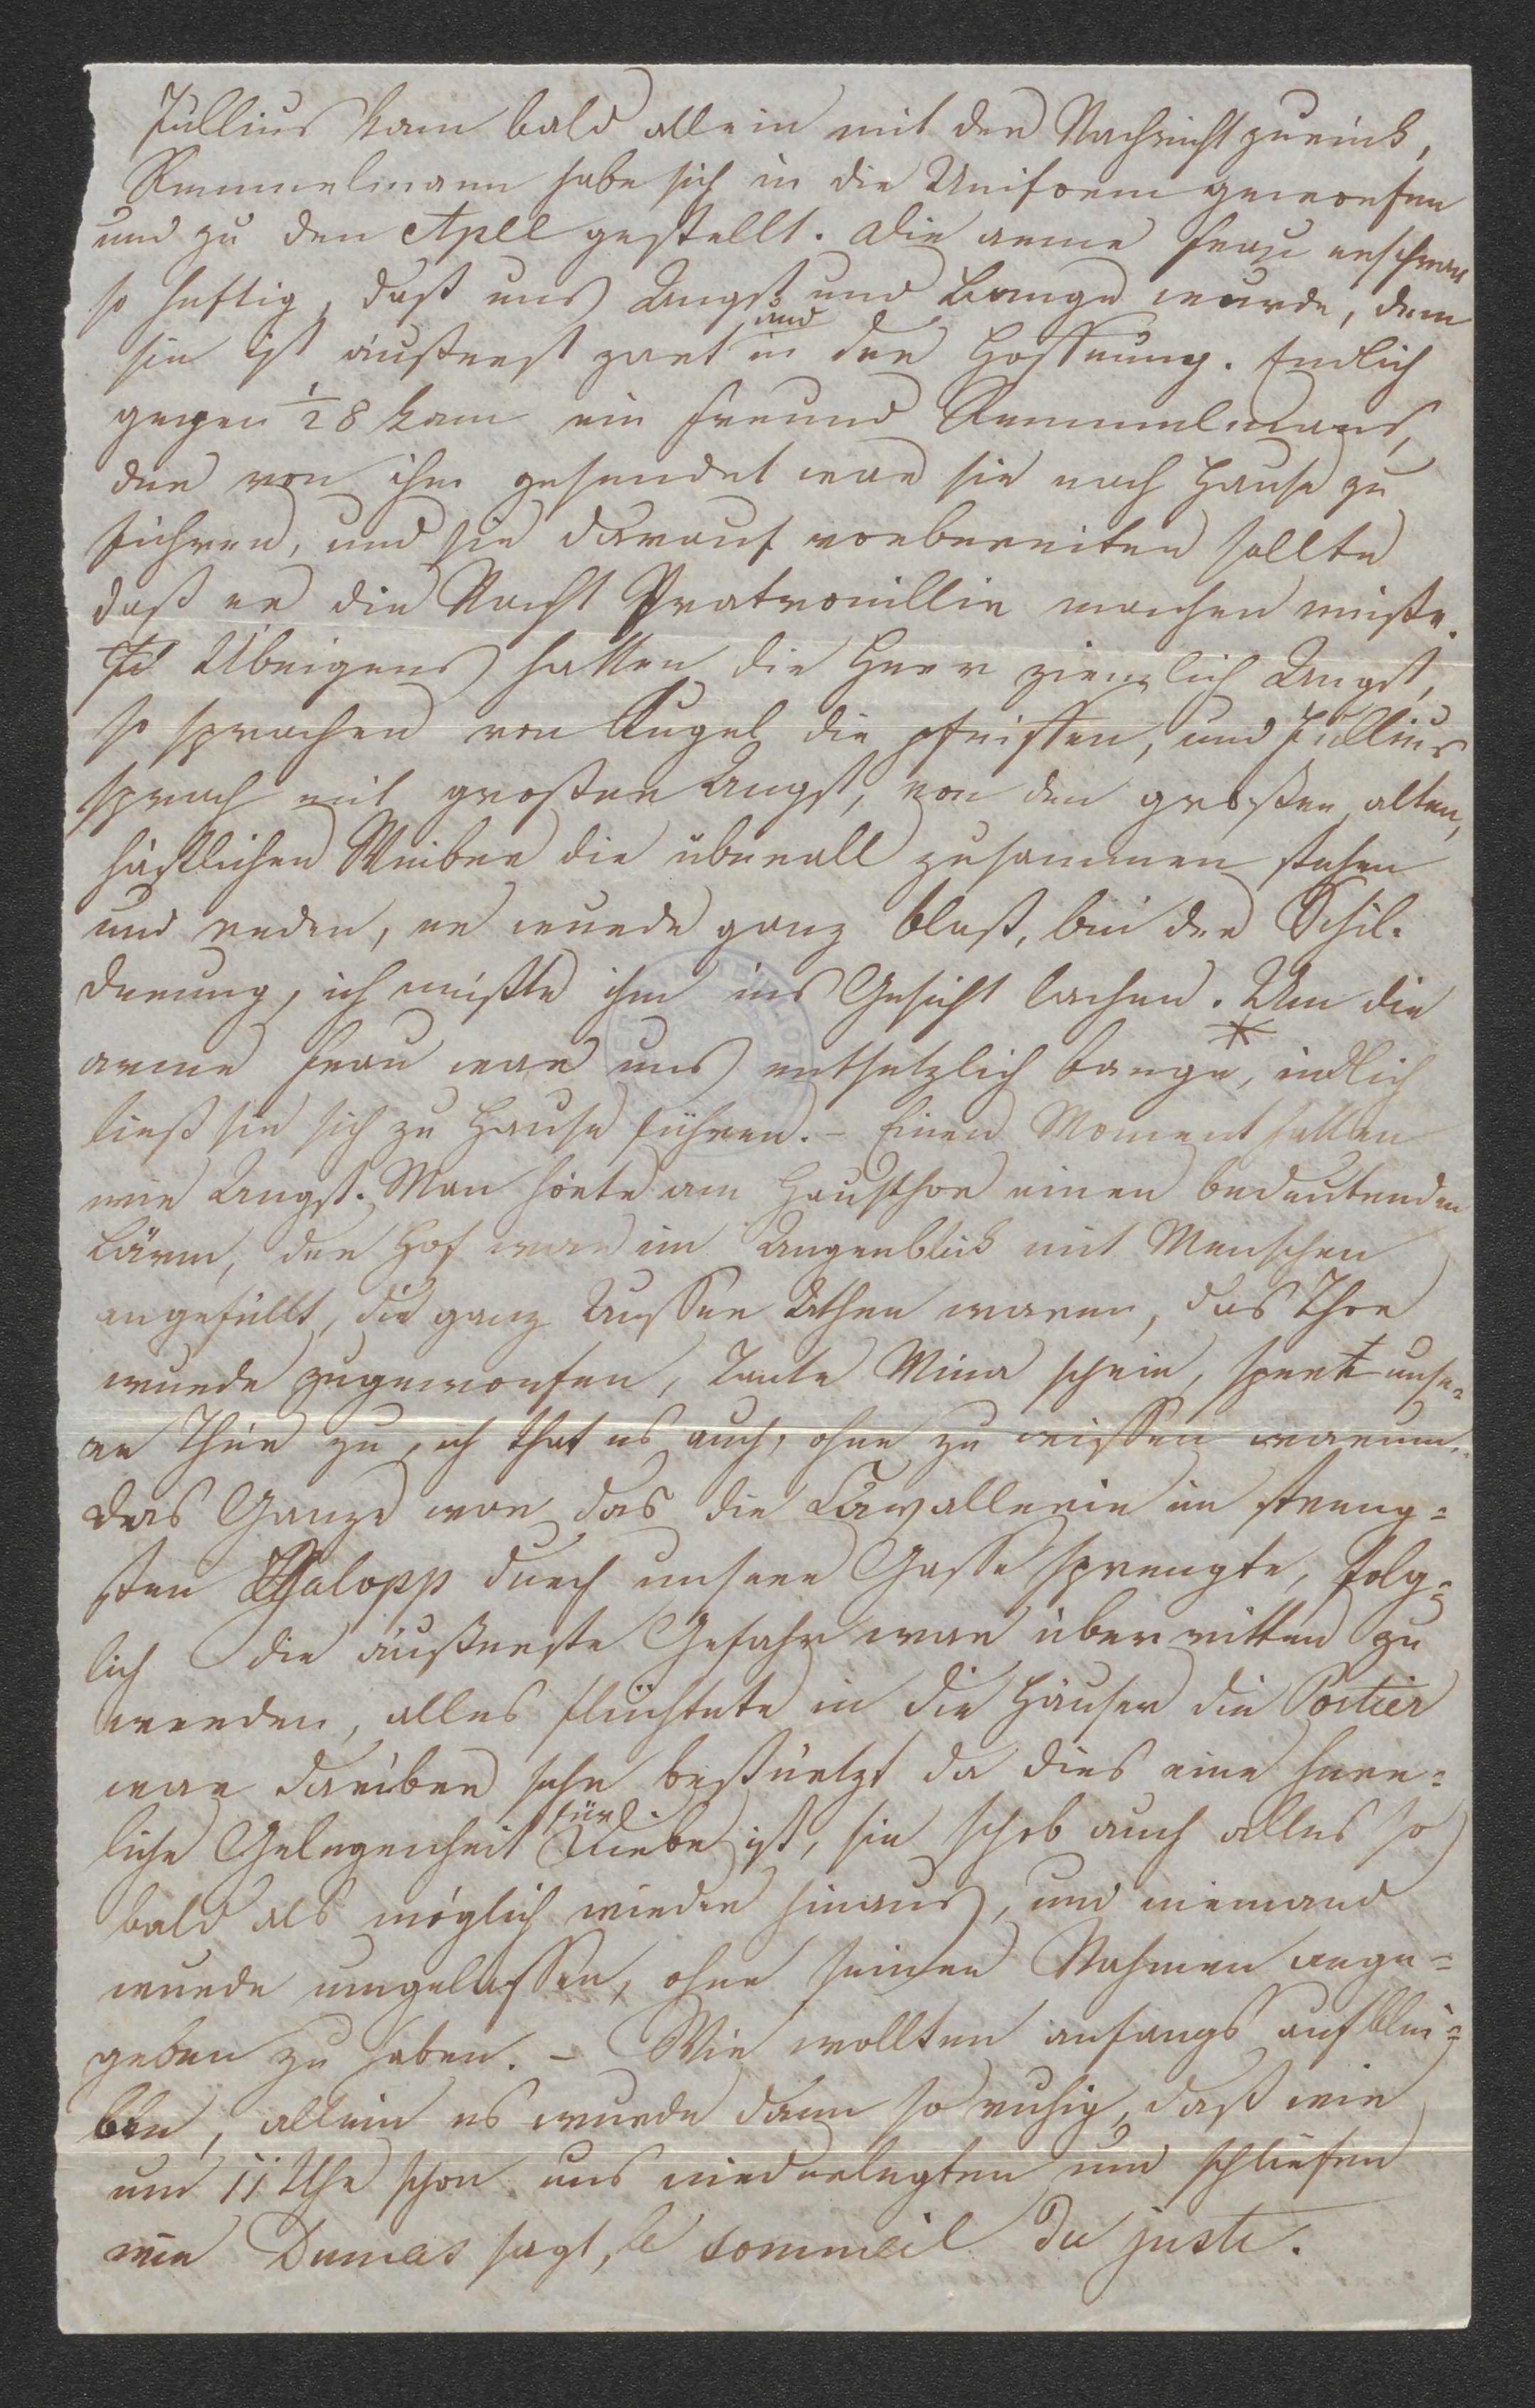 Jullius kam bald allein mit der Nachricht zurück,
Remmelmann habe sich in die Uniform geworfen
und zu den Apell gestellt. Die arme Frau erschrak
so heftig, daß uns Angst und Bange wurde, denn
sie ist äußerst zart und in der Hoffnung. Endlich
gegen ½ 8 kam ein Freund Remmelmans,
der von ihm gesendet war sie nach Hause zu
führen, und sie darauf vorbereiten sollte
daß er die Nacht Pratrouillie machen müße.
Übrigens hatten die Herr ziemlich Angst,
so sprachen von Kugel die pfeiffen, und Jullius
sprach mit großer Angst, von den großen alten,
häßlichen Weiber die überall zusammen stehen
und reden, er wurde ganz blaß, bei der Schil-
derung, ich mußte ihm ins Gesicht lachen. Um die
arme Frau war uns entsetzlich bange, endlich
ließ sie sich zu Hause führen. – Einen Moment hatten
wir Angst. Man hörte am Hausthor einen bedeutenden
Lärm, der Hof war im Augenblick mit Menschen
angefüllt, die ganz Ausser Athen waren, das Thor
wurde zugeworfen, Tante Mina schrie, sperrt unse-
re Thür zu, ich that es auch, ohne zu wissen warum.
Das Ganze war das die Cavallerie im streng-
sten Galopp durch unsere Gasse sprengte, folg-
lich die äußerste Gefahr war überritten zu
werden, alles flüchtete in die Häuser die Portier
war darüber sehr bestürtzt da dies eine herr-
liche Gelegenheit für Diebe ist, sie schob auch alles so
bald als möglich wieder hinaus, und niemand
wurde eingelassen, ohne seinen Nahmen ange-
geben zu haben. – Wir wollten anfangs aufblei-
ben, allein es wurde dann so ruhig, daß wir
um 11 Uhr schon uns niederlegten und schliefen
wie Dumas sagt, le sommeil du juste.